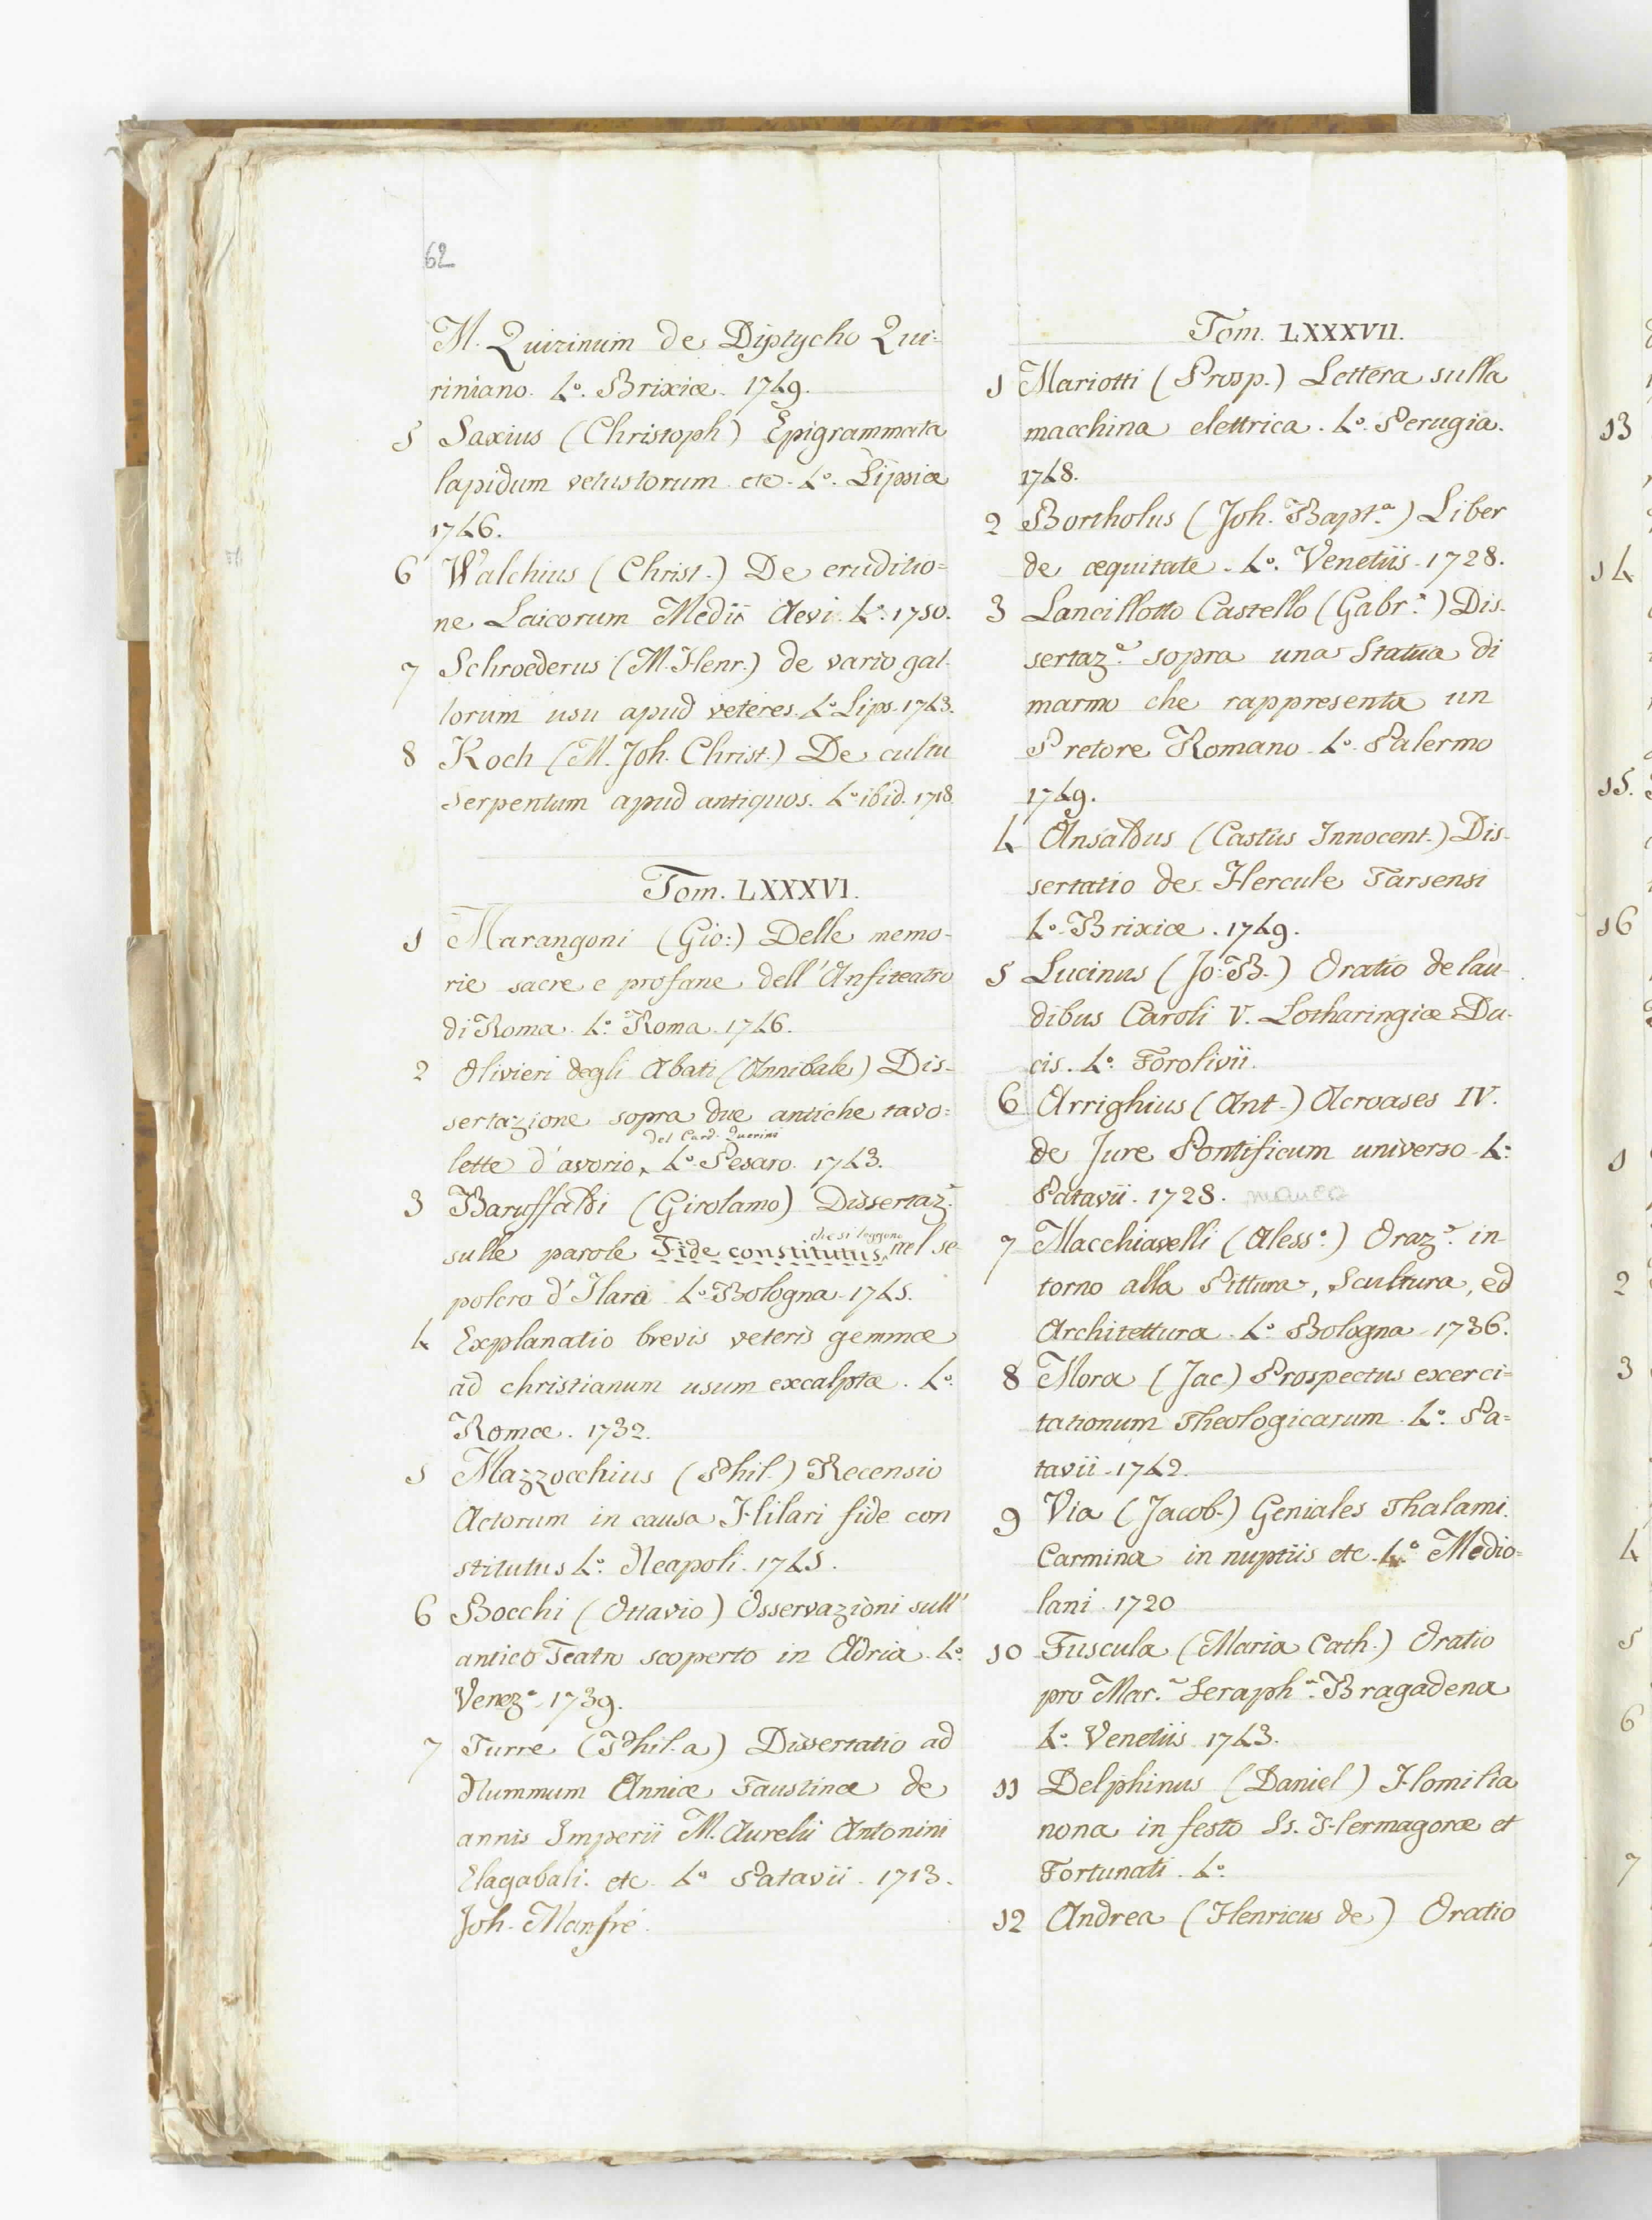 62
M. Quirinum de Diptycho Qui=
riniano. 4º. Brixiæ. 1749.
5 Saxius (Christoph) Epigrammata
lapidum vetustorum etc. 4º. Lipsiæ
1746.
6 Walchius (Christ.) De eruditio=
ne Laicorum Medii Aevi. 4º. 1750.
7 Schroederus (M. Henr.) de vario gal-
lorum usu apud veteres. 4º Lips. 1743.
8 Koch (M. Joh. Christ.) De cultu
serpentum apud antiquos. 4º ibid. 1718.
Tom. LXXXVI.
1 Marangoni (Gio:) Delle memo-
rie sacre e profane dell'Anfiteatro
di Roma. 4º. Roma. 1746.
2 Olivieri degli Abati (Annibale) Dis-
sertazione sopra due antiche tavo=
del Card. Querini
lette d'avorio, 4º. Pesaro. 1743.
3 Baruffaldi (Girolamo) Dissertaz.e
che si leggono
sulle parole Fide constitutus nel se-
polcro d'Ilara 4º. Bologna. 1745.
4 Explanatio brevis veteris gemmæ
ad christianum usum excalptæ. 4º.
Romæ. 1732.
5 Mazzocchius (Phil.) Recensio
Actorum in causa Hilari fide con
stitutus 4º. Neapoli. 1745.
6 Bocchi (Ottavio) Osservazioni sull'
antico Teatro scoperto in Adria. 4º.
Venez.a 1739.
7 Turre (Phil. a) Dissertatio ad
Nummum Anniæ Faustinæ de
annis Imperii M. Aurelii Antonini
Elagabali. etc. 4º Patavii. 1713.
Joh. Manfré.
Tom. LXXXVII.
1 Mariotti (Prosp.) Lettera sulla
macchina elettrica. 4º. Perugia.
1748.
2 Bortholus (Joh. Bapt.a) Liber
de æquitate. 4º. Venetiis. 1728.
3 Lancillotto Castello (Gabr.e) Dis-
sertaz.e sopra una Statua di
marmo che rappresenta un
Pretore Romano. 4º. Palermo
1749.
4 Ansaldus (Castus Innocent.) Dis-
sertatio de Hercule Tarsensi
4º. Brixiæ. 1749.
5 Lucinus (Jo: B.) Oratio de lau-
dibus Caroli V. Lotharingiæ Du-
cis. 4º. Forolivii.
6 Arrighius (Ant.) Acroases IV.
de Jure Pontificum universo. 4º.
Patavii. 1728. manca
7 Macchiavelli (Aless.o) Oraz.e in-
torno alla Pittura, Scultura, ed
Architettura. 4º. Bologna. 1736.
8 Mora (Jac.) Prospectus exerci=
tationum Theologicarum. 4º. Pa=
tavii. 1742.
9 Via (Jacob.) Geniales Thalami.
Carmina in nuptiis etc. 4º Medio=
lani. 1720
10 Fuscula (Maria Cath.) Oratio
pro Mar.a Seraph.a Bragadena
4º. Venetiis. 1743.
11 Delphinus (Daniel) Homilia
nona in festo Ss. Hermagoræ et
Fortunati. 4º.
12 Andrea (Henricus de) Oratio
13
14
15.
16
1
2
3
4
5
6
7